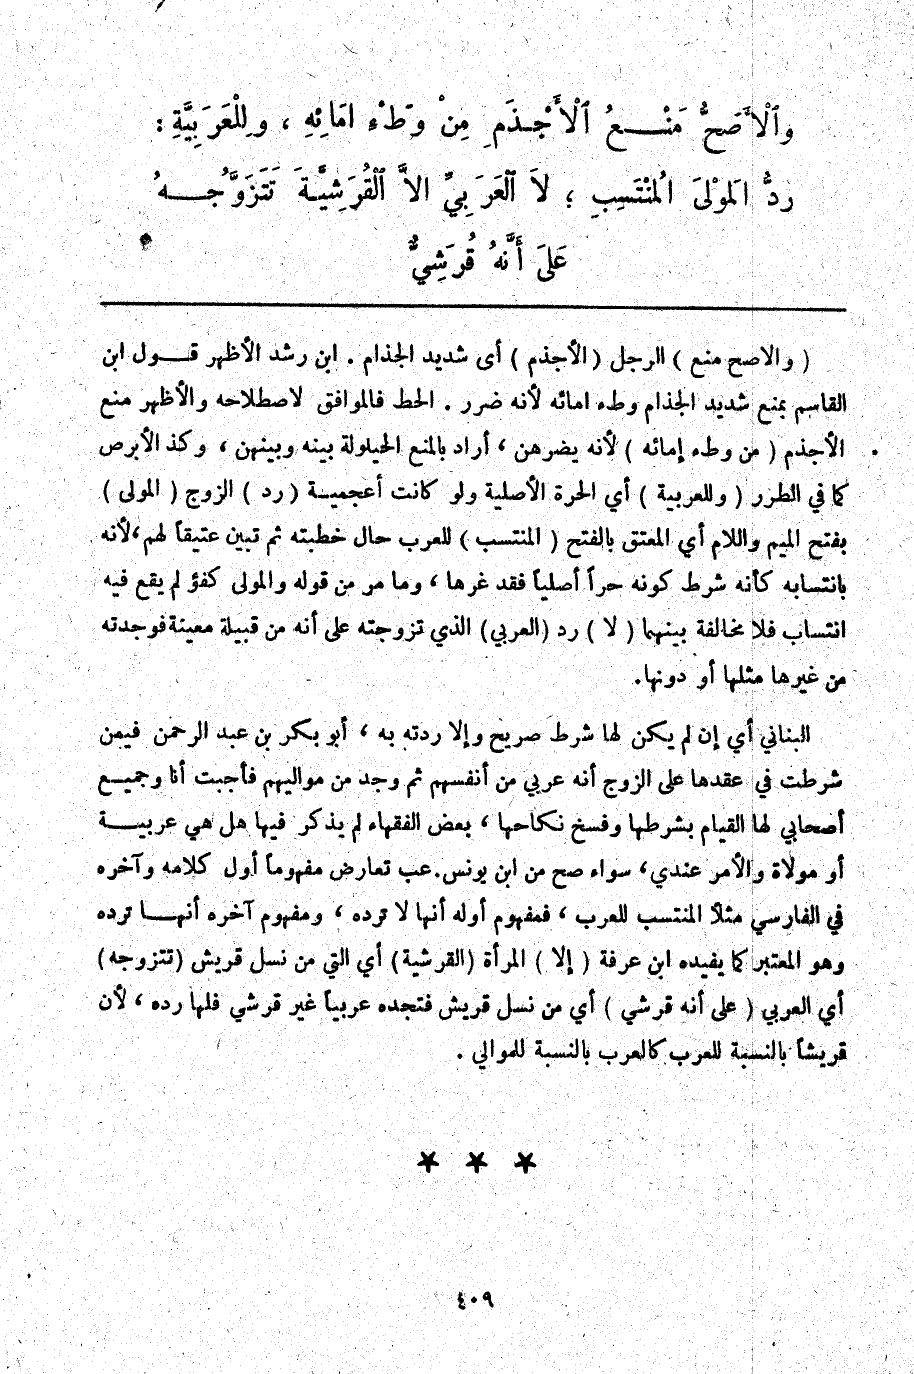 وَٱلْأَصَحُّ مَنْـــعُ ٱلْأَجْـذَمِ مِنْ وَطْءِ امَائِهِ ، وَلِلْعَرَبِيَّةِ :
رَدُّ المَوْلَى المُنْتَسِبِ ؛ لَا ٱلْعَرَبِيِّ الاَّ ٱلْقُرَشِيَّـةَ تَتَزَوَّجُـــهُ
عَلَى أَنَّهُ قُرَشِيٌّ
( والاصح منع ) الرجل ( الأجذم ) أى شديد الجذام . ابن رشد الأظهر قـــول ابن
القاسم بمنع شديد الجذام وطء امائه لأنه ضرر . الحط فالموافق لاصطلاحه والأظهر منع
الأجذم ( من وطء إمائه ) لأنه يضرهن ، أراد بالمنع الحيلولة بينه وبينهن ، وكذ الأبرص
كما في الطرر ( وللعربية ) أي الحرة الأصلية ولو كانت أعجميــة ( رد ) الزوج ( المولى )
بفتح الميم واللام أي المعتق بالفتح ( المنتسب ) للعرب حال خطبته ثم تبين عتيقاً لهم ،لأنه
بانتسابه كأنه شرط كونه حراً أصلياً فقد غرها ، وما مر من قوله والمولى كفؤ لم يقع فيه
انتساب فلا مخالفة بينهما ( لا ) رد (العربي) الذي تزوجته على أنه من قبيلة معينة فوجدته
من غيرها مثلها أو دونها.
البناني أي إن لم يكن لها شرط صريح وإلا ردته به ، أبو بكر بن عبد الرحمن فيمن
شرطت في عقدها على الزوج أنه عربي من أنفسهم ثم وجد من مواليهم فأجبت أنا وجميــع
أصحابي لها القيام بشرطها وفسخ نكاحها ، بعض الفقهاء لم يذكر فيها هل هي عربيـــة
أو مولاة والأمر عندي، سواء صح من ابن يونس.عب تعارض مفهوماً أول كلامه وآخره
في الفارسي مثلاً المنتسب للعرب ، فمفهوم أوله أنها لا ترده ، ومفهوم آخره أنهـــا ترده
وهو المعتبر كما يفيده ابن عرفة ( إلا ) المرأة (القرشية) أي التي من نسل قريش (تتزوجه)
أي العربي ( على أنه قرشي ) أي من نسل قريش فتجده عربياً غير قرشي فلها رده ، لأن
قريشاً بالنسبة للعرب كالعرب بالنسبة للموالي .
★ ★ ★
٤٠٩